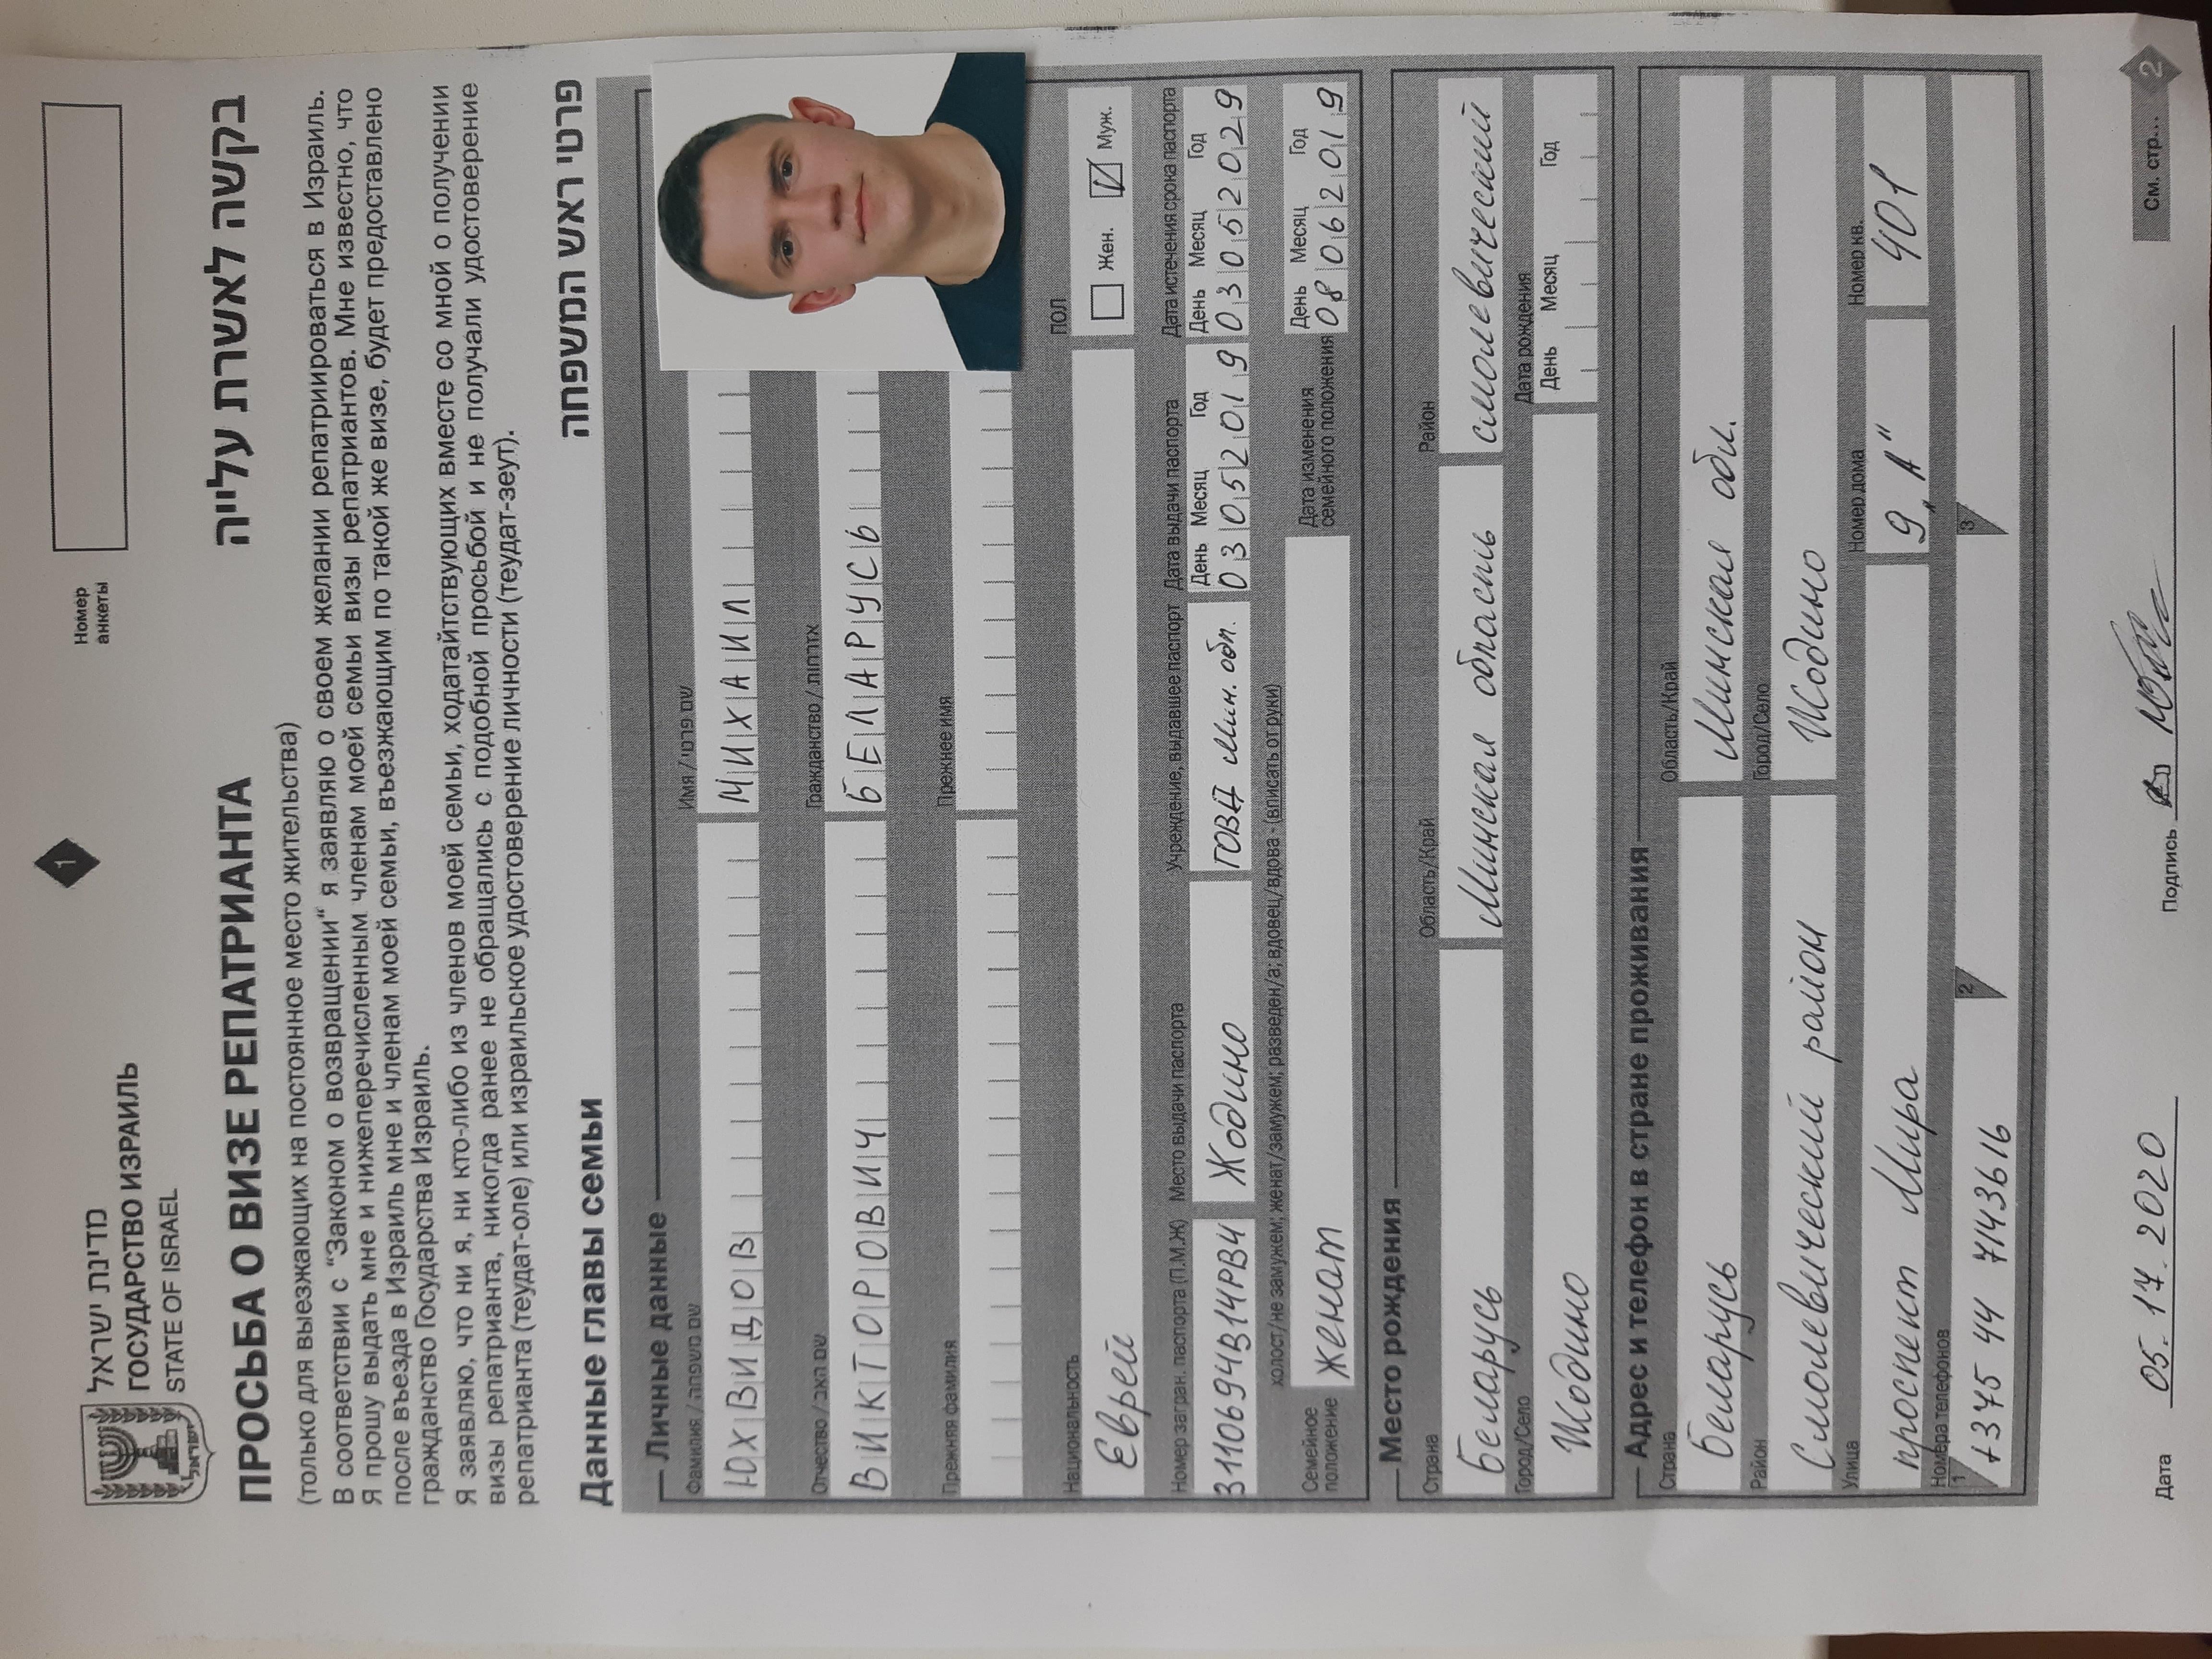 1
Номер
анкеты
מדינת ישראל
ГОСУДАРСТВО ИЗРАИЛЬ
STATE OF ISRAEL
ישראל
ПРОСЬБА О ВИЗЕ РЕПАТРИАНТА
בקשה לאשרת עלייה
(только для выезжающих на постоянное место жительства)
В соответствии с “Законом о возвращении“ я заявляю о своем желании репатриироваться в Израиль.
Я прошу выдать мне и нижеперечисленным членам моей семьи визы репатриантов. Мне известно, что
после въезда в Израиль мне и членам моей семьи, въезжающим по такой же визе, будет предоставлено
гражданство Государства Израиль.
Я заявляю, что ни я, ни кто-либо из членов моей семьи, ходатайтствующих вместе со мной о получении
визы репатрианта, никогда ранее не обращались с подобной просьбой и не получали удостоверение
репатрианта (теудат-оле) или израильское удостоверение личности (теудат-зеут).
Данные главы семьи
פרטי ראש המשפחה
Личные данные
Фамилия / שם משפחה
Имя / שם פרטי
ЮХВИДОВ
МИХАИЛ
Отчество / שם האב
Гражданство / אזרחות
ВИКТОРОВИЧ
БЕЛАРУСЬ
Прежняя фамилия
Прежнее имя
Национальность
ПОЛ
Еврей
Жен.
Муж.
Номер загран. паспорта (П.М.Ж)
Место выдачи паспорта
Учреждение, выдавшее паспорт
Дата выдачи паспорта
Дата истечения срока паспорта
День Месяц Год
День Месяц Год
3110694В14РВ4
Жодино
ГОВД Мин. обл.
03052019
03052029
холост/не замужем; женат/замужем; разведен/а; вдовец/вдова - (вписать от руки)
Семейное
положение
женат
Дата изменения
семейного положения
День Месяц Год
08062019
Место рождения
Страна
Область/Край
Район
Беларусь
Минская область
смолевический
Город/Село
Дата рождения
День Месяц Год
Жодино
Адрес и телефон в стране проживания
Страна
Область/Край
Беларусь
Минская обл.
Район
Город/Село
Смолевический район
Жодино
Улица
Номер дома
Номер кв.
проспект Мира
9 „А“
401
Номера телефонов
1
+375 44 7143616
2
3
Дата
05.17.2020
Подпись
См. стр...
2